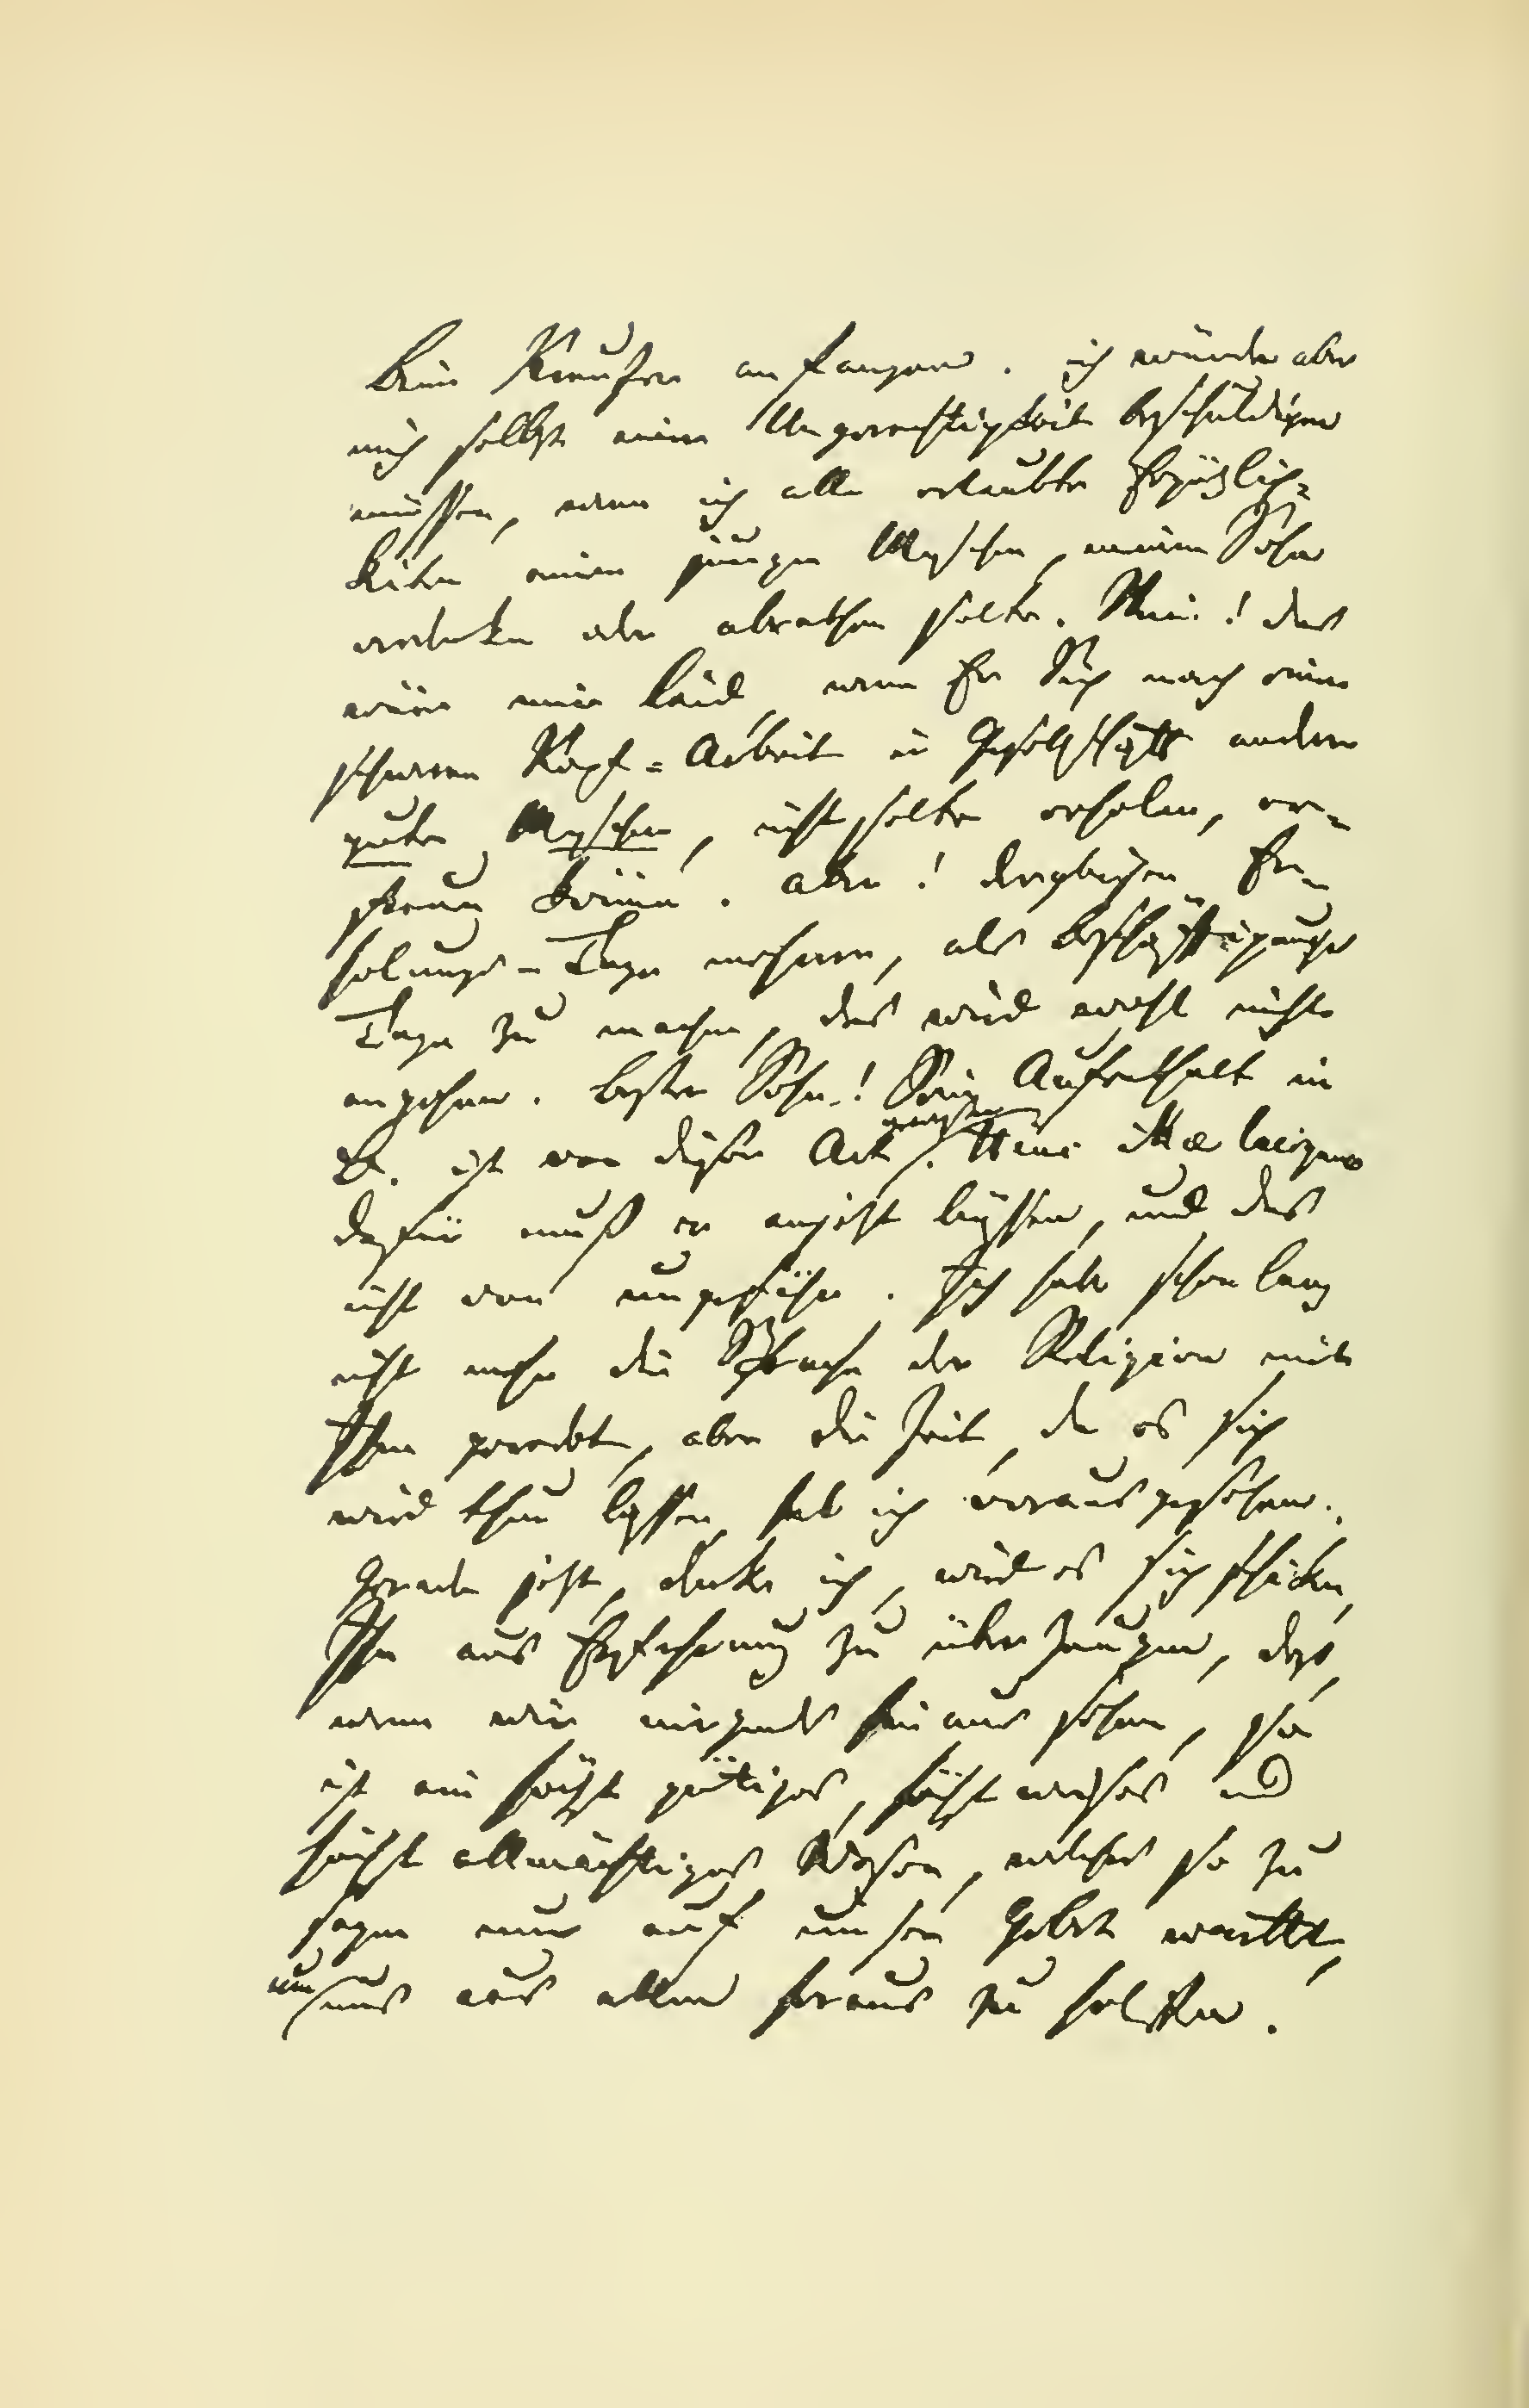 beim Kreuzer anfangen. ich würde aber
mich selbst einer Ungerechtigkeit beschuldigen
müssen, wenn ich alle erlaubte Ergözlich-
keiten einem jungen Menschen, meinem Sohn
verdenken oder abrathen solte. Nein! das
wäre mir laid, wenn Er Sich nach einer
schweren Kopf-Arbeit in Gesellschafft anderer
guter Menschen, nicht solte erholen, er-
freuen können. aber! dergleichen Er-
holungs-Tage mehrere, als beschäfftigungs
Tage zu machen, das wird wohl nicht
angehen. bester Sohn! Sein Aufenthalt in
B. ist von diser Art gewesen. Hinc illæ lacrymæ
dafür muß er anjezt büssen, und das
nicht von ungefähr. Ich habe schon lang
nicht mehr die Sprache der Religion mit
Ihm geredet, aber die Zeit, da es sich
wird thun lassen, hab ich vorausgesehen.
Gerade jezt, denke ich, wird es sich schicken,
Ihn aus Erfahrung zu überzeugen, daß,
wenn wir nirgends hinaus sehen, so
ist ein höchst gütiges, höchst weises und
höchst allmächtiges Wesen, welches so zu
sagen nur auf unser Gebet wartet,
um uns aus allem heraus zu helffen.